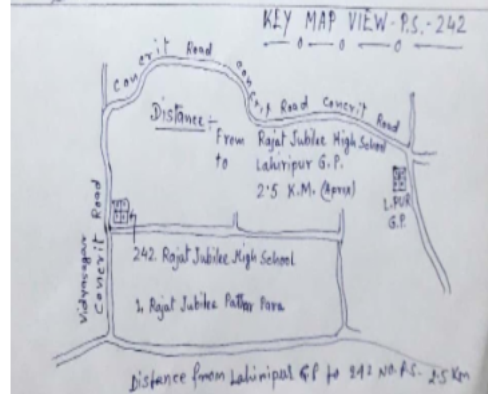 KEY MAP VIEW - P.S. - 242
Concrit Road Concrit Road Concrit Road
Distance :-
From Rajat Jubilee High School
to Lahiripur G.P.
2.5 K.M. (Aprox)
L.PUR
G.P.
Vidyasagar
Concrit Road
242. Rajat Jubilee High School
1, Rajat Jubilee Pathar Para
Distance from Lahiripur GP to 242 NO. P.S. 2.5 Km